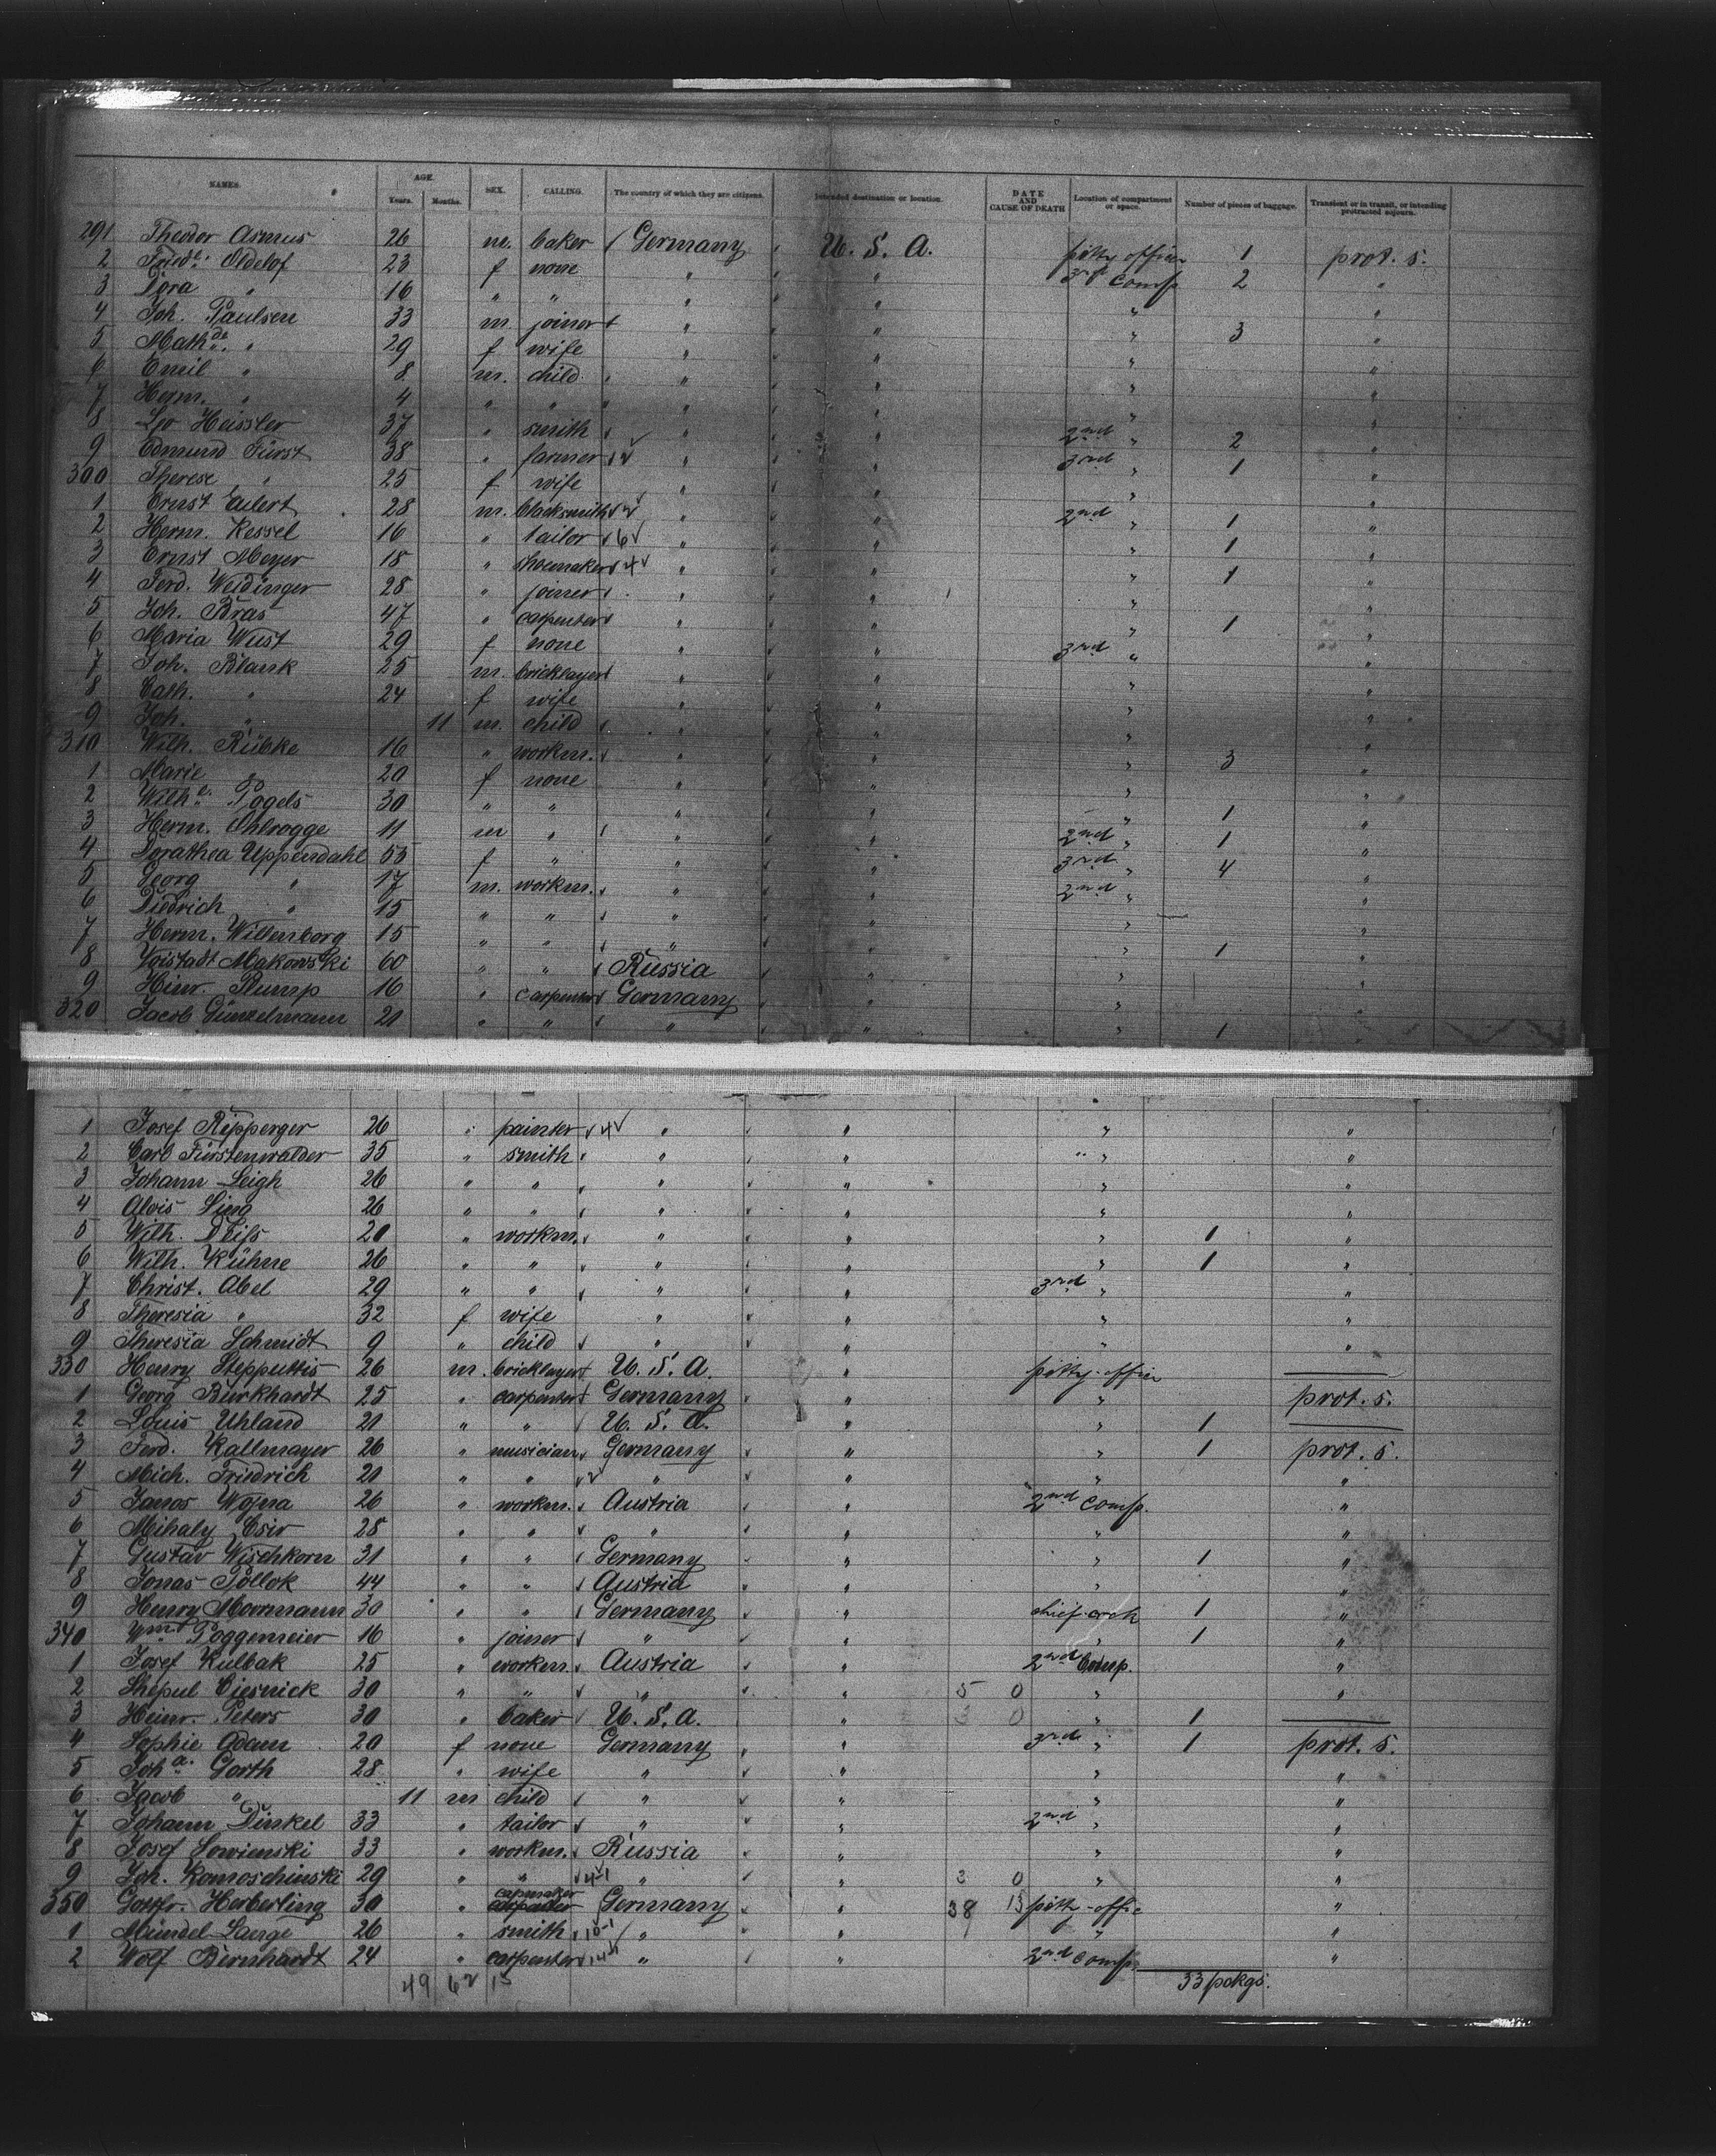 NAMES. AGE. Years. Months. SEX. CALLING. The country of which they are citizens. Intended destination or location. DATE AND CAUSE OF DEATH Location of compartment or space. Number of pieces of baggage. Transient or in transit, or intending protracted sojourn.
291 Theodor Asmus 26 m. baker Germany U. S. A. petty officer 1 prot. s.
2 Fried. Oldelof 23 f none " " 3rd comp 2 "
3 Dora " 16 " " " " " "
4 Joh. Paulsen 33 m. joiner " " " 3 "
5 Mathde. " 29 f wife " " " "
6 Emil " 8 m. child " " " "
7 Herm. " 4 " " " " " "
8 Leo Heissler 37 " smith " " 2nd " 2 "
9 Edmund Fürst 38 " farmer " " 3rd " 1 "
300 Therese " 25 f wife " " " "
1 Ernst Eulert 28 m. blacksmith " " 2nd " 1 "
2 Herm. Kessel 16 " tailor 6 " " " 1 "
3 Ernst Meyer 18 " shoemaker 4 " " " 1 "
4 Ferd. Weidinger 28 " joiner " " " "
5 Joh. Bras 47 " carpenter " " " 1 "
6 Maria Wust 29 f none " " 3rd " "
7 Joh. Blank 25 m. bricklayer " " " "
8 Cath. " 24 f wife " " " "
9 Joh. " 11 m. child " " " "
310 Wilh. Rübke 16 " workm. " " " 3 "
1 Marie " 20 f none " " " "
2 Wilhe. Pogels 30 " " " " " 1 "
3 Herm. Ohlrogge 11 m " " " 2nd " 1 "
4 Dorathea Uppendahl 55 f " " " 3rd " 4 "
5 Georg " 17 m. workm. " " 2nd " "
6 Diedrich " 15 " " " " " "
7 Herm. Willenborg 15 " " " " " 1 "
8 Makowski 60 " " Russia " " "
9 Hinr. Plump 16 " carpenter Germany " " "
320 Jacob Günzelmann 21 " " " " " 1
1 Josef Ripperger 26 " painter 4 " " " "
2 Carl Fürstenwalder 35 " smith " " " "
3 Johann Leigh 26 " " " " " "
4 Alois Sing 26 " " " " " "
5 Wilh. Deiss 20 " workm. " " " 1 "
6 Wilh. Kühne 26 " " " " " 1 "
7 Christ. Abel 29 " " " " 3rd " "
8 Theresia " 32 f wife " " " "
9 Theresia Schmidt 9 " child " " " "
330 Henry Stepputtis 26 m. bricklayer U. S. A. " petty-officer
1 Georg Burkhardt 25 " carpenter Germany " " prot. s.
2 Louis Uhland 21 " " U. S. A. " " 1
3 Ferd. Kallmayer 26 " musician Germany " " 1 prot. s.
4 Mich. Friedrich 21 " " 2 " " " "
5 Janos Wojna 26 " workm. Austria " 2nd comp. "
6 Mihaly Csir 28 " " " " " "
7 Gustav Wischkorn 31 " " Germany " " 1 "
8 Jonas Pollok 44 " " Austria " " "
9 Henry Moormann 30 " " Germany " chief cook 1 "
340 Wm. Poggemeier 16 " joiner " " " 1 "
1 Josef Kulbak 25 " workm. Austria " 2nd Comp. "
2 Shepul Ciesnick 30 " " " " 5 0 " "
3 Heinr. Peters 30 " baker U. S. A. " 3 0 " 1
4 Sophie Adam 20 f none Germany " 3rd " 1 prot. s.
5 Joha. Gorth 28 " wife " " " "
6 Jacob " 11 m child " " " "
7 Johann Dinkel 33 " tailor " " 2nd " "
8 Josef Lowienski 33 " workm. Russia " " "
9 Joh. Komoschinski 29 " " 4-1 " " 3 0 " "
350 Gottfr. Herberling 30 " capmaker carpenter Germany " 38 13 petty-office "
1 Mündel Lange 26 " smith 10-1 " " " "
2 Wolf Bernhardt 24 " carpenter 14 " " 2nd comp. "
49 62 15 33 pckgs.